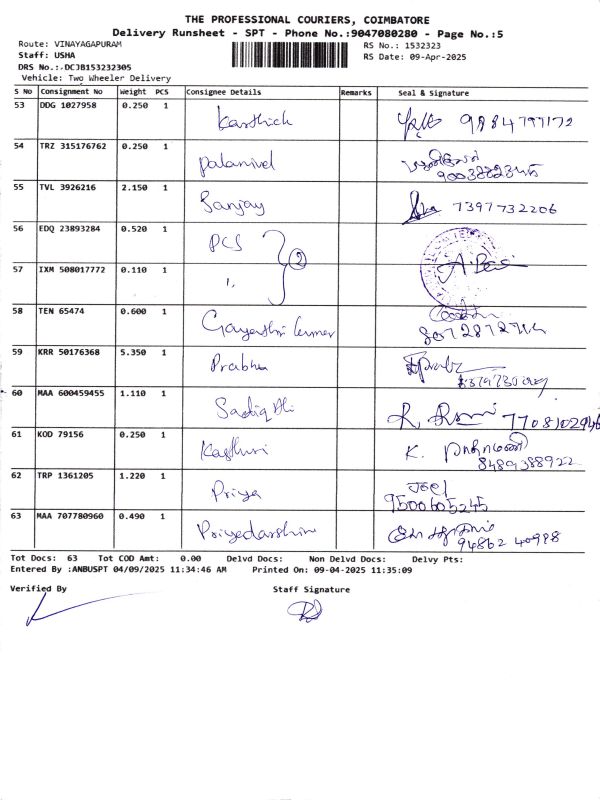 THE PROFESSIONAL COURIERS, COIMBATORE
Delivery Runsheet - SPT - Phone No.:9047080280 - Page No.:5
Route: VINAYAGAPURAM
Staff: USHA
DRS No.:.DCJB153232305
Vehicle: Two Wheeler Delivery
RS No.: 1532323
RS Date: 09-Apr-2025
S No Consignment No Weight PCS Consignee Details Remarks Seal & Signature
53 DDG 1027958 0.250 1 Karthick 9884797172
54 TRZ 315176762 0.250 1 Palanivel
55 TVL 3926216 2.150 1 Sanjay 7397732206
56 EDQ 23893284 0.520 1 PCS 2
57 IXM 508017772 0.110 1 ''
58 TEN 65474 0.600 1 Gayathri kumar
59 KRR 50176368 5.350 1 Prabhu
60 MAA 600459455 1.110 1 Sadiq Ali 7708102946
61 KOD 79156 0.250 1 Kasthuri K.
8489388922
62 TRP 1361205 1.220 1 Priya Joel
9500605245
63 MAA 707780960 0.490 1 Priyadarshini
94862 40998
Tot Docs: 63 Tot COD Amt: 0.00 Delvd Docs: Non Delvd Docs: Delvy Pts:
Entered By :ANBUSPT 04/09/2025 11:34:46 AM Printed On: 09-04-2025 11:35:09
Verified By Staff Signature